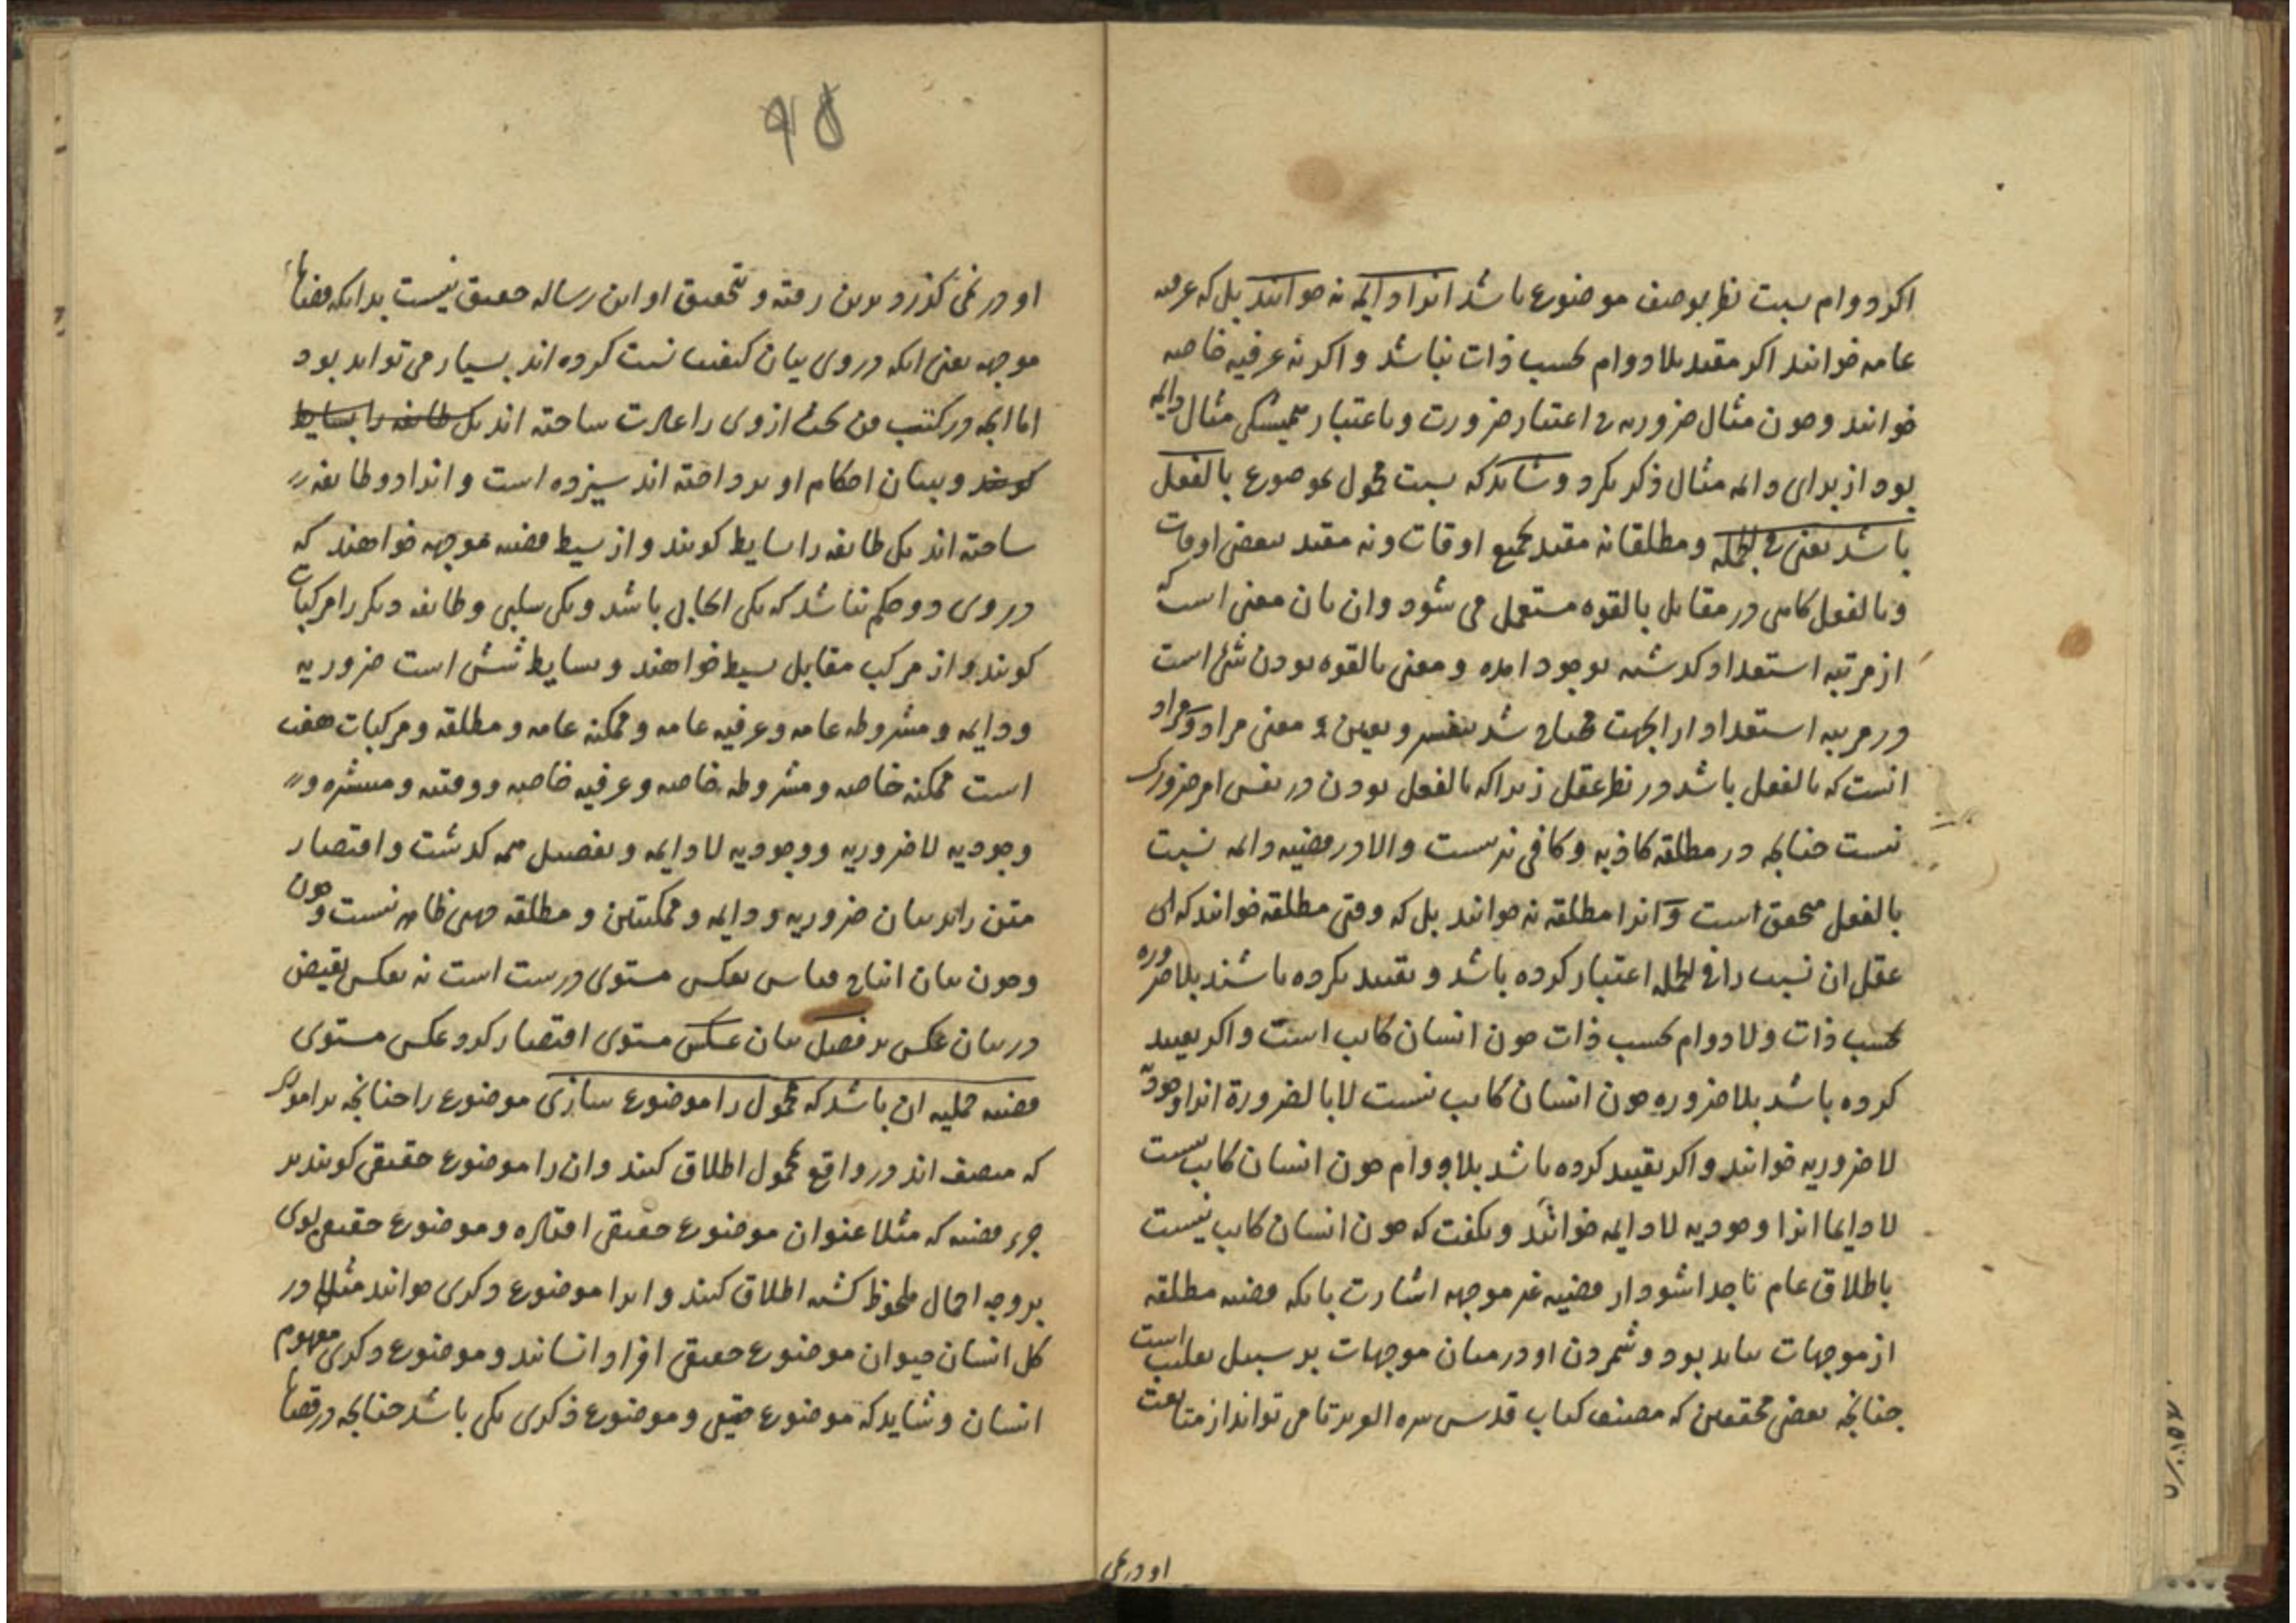 اکر دوام نسبت نظر بوصف موضوع باشد انرا دایمه نه خوانند بل که عرفیه
عامه خوانند اکر مقید بلا دوام بحسب ذات نباشد و اکر نه عرفیه خاصه
خوانند و چون مثال ضروریه بی اعتبار ضرورت و باعتبار همیشکی مثال دایمه
بود از برای دایمه مثال ذکر نکرد و شاید که نسبت محمول بموضوع بالفعل
باشد یعنی فی الجمله و مطلقا نه مقید بجمیع اوقات و نه مقید ببعضی اوقات
و بالفعل کاهی در مقابل بالقوه مستعمل می شود و ان بان معنی است که
از مرتبه استعداد کذشته بوجود امده و معنی بالقوه بودن شئ است
در مرتبه استعداد ازانجهت محتاج شد بتفسیر و تعیین معنی مراد و مراد
انست که بالفعل باشد در نظر عقل زیرا که بالفعل بودن در نفس امر ضرورک
نیست چنانچه در مطلقه کاذبه و کافی نیست والا در قضیه دایمه نسبت
بالفعل متحقق است و انرا مطلقه نه خوانند بل که وقتی مطلقه خوانند که ای
عقل ان نسبت را فی الجمله اعتبار کرده باشد و تقیید نکرده باشند بلا ضروره
بحسب ذات و لا دوام بحسب ذات چون انسان کاتب است و اکر تقیید
کرده باشد بلا ضروره چون انسان کاتب نیست لا بالضرورة انرا وجودیه
لا ضروریه خوانند و اکر تقیید کرده باشد بلا دوام چون انسان کاتب نیست
لا دایما انرا وجودیه لا دایمه خوانند و نکفت که چون انسان کاتب نیست
باطلاق عام تا جدا شود از قضیه غیر موجهه اشارت بانکه قضیه مطلقه
از موجهات نباید بود و شمردن او در میان موجهات بر سبیل تغلیب است
چنانچه بعضی محققین که مصنف کتاب قدس سره العزیز تا می تواند از متابعت
او در نمی
۹۵
او در نمی کذرد برین رفته و تحقیق او این رساله حقیق نیست بدانکه قضایا
موجهه یعنی انکه در وی بیان کیفیت نسبت کرده اند بسیار می تواند بود
اما انچه در کتب فن بحث از وی را عادت ساخته اند یک طایفه را بسایط
کویند و بیان احکام او پرداخته اند سیزده است و انرا دو طایفه
ساخته اند یک طایفه را بسایط کویند و از بسیط قضیه موجهه خواهند که
در وی دو حکم نباشد که یکی ایجابی باشد و یکی سلبی و طایفه دیکر را مرکبات
کویند و از مرکب مقابل بسیط خواهند و بسایط شش است ضروریه
و دایمه و مشروطه عامه و عرفیه عامه و ممکنه عامه و مطلقه و مرکبات هفت
است ممکنه خاصه و مشروطه خاصه و عرفیه خاصه و وقتیه و منتشره و
وجودیه لا ضروریه و وجودیه لا دایمه و تفصیل همه کذشت و اقتصار
متن را بر بیان ضروریه و دایمه و ممکنتین و مطلقه وجهی ظاهر نیست و چون
و چون بیان انتاج قیاس بعکس مستوی درست است نه بعکس نقیض
در بیان عکس بر فصل بیان عکس مستوی اقتصار کرد و عکس مستوی
قضیه حملیه ان باشد که محمول را موضوع سازی موضوع را چنانچه بر اموری
که متصف اند در واقع محمول اطلاق کنند و ان را موضوع حقیقی کویند بر
جزء قضیه که مثلا عنوان موضوع حقیقی افتاده و موضوع حقیقی بوی
بر وجه اجمال ملحوظ کشته اطلاق کنند و انرا موضوع ذکری خوانند مثلا در
کل انسان حیوان موضوع حقیقی افراد انسانند و موضوع ذکری مفهوم
انسان و شاید که موضوع حقیقی و موضوع ذکری یکی باشد چنانچه در قضایا